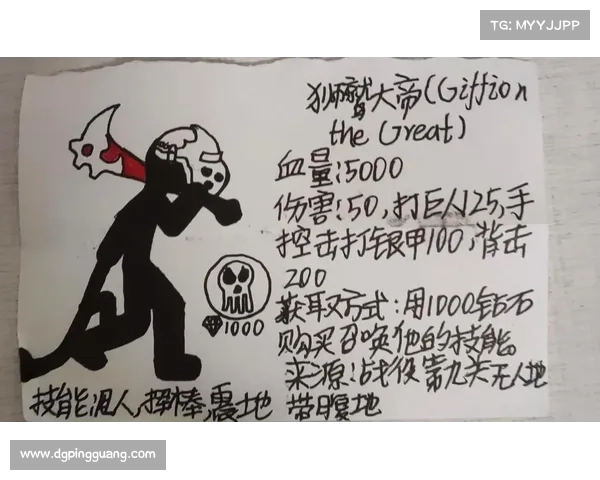 TG: MYYJJPP
狮鹫大帝(Giffion
the Great)
血量:5000
伤害:50,打巨人25,手
控击打银甲100,背击
200
获取方式:用1000钻石
购买召唤他的技能。
来源:战役第九关无人地
带腹地
1000
技能:泥人,挥棒,震地
www.dgpingguang.com